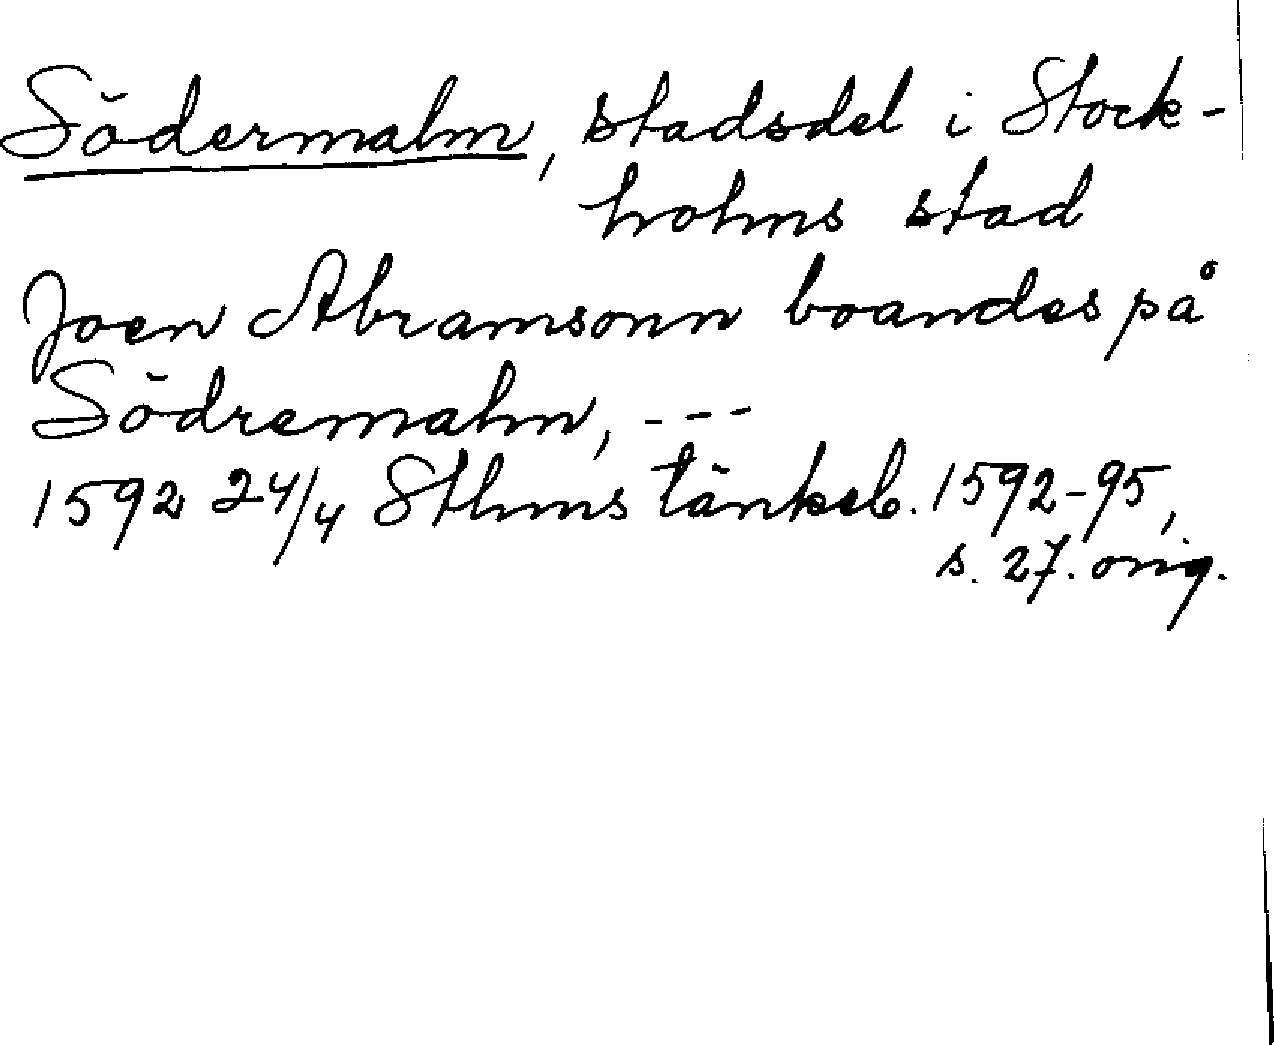 Södermalm, stadsdel i Stock-
holms stad
Joen Abramsonn boandes på
Södremalm, ---
1592 24/4 Sthms tänkeb. 1592-95,
s. 27. orig.